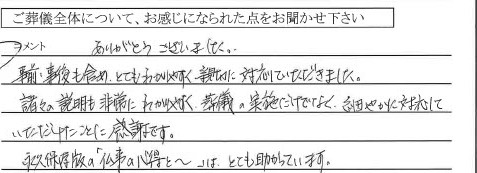 ご葬儀全体について、お感じになられた点をお聞かせ下さい
コメント ありがとうございました。
事前・事後も含め、とてもわかりやすく親切に対応していただきました。
諸々の説明も非常にわかりやすく、葬儀の実施だけでなく、細やかに対応して
いただけたことに感謝です。
永久保存版の「仏事の心得と〜」は、とても助かっています。